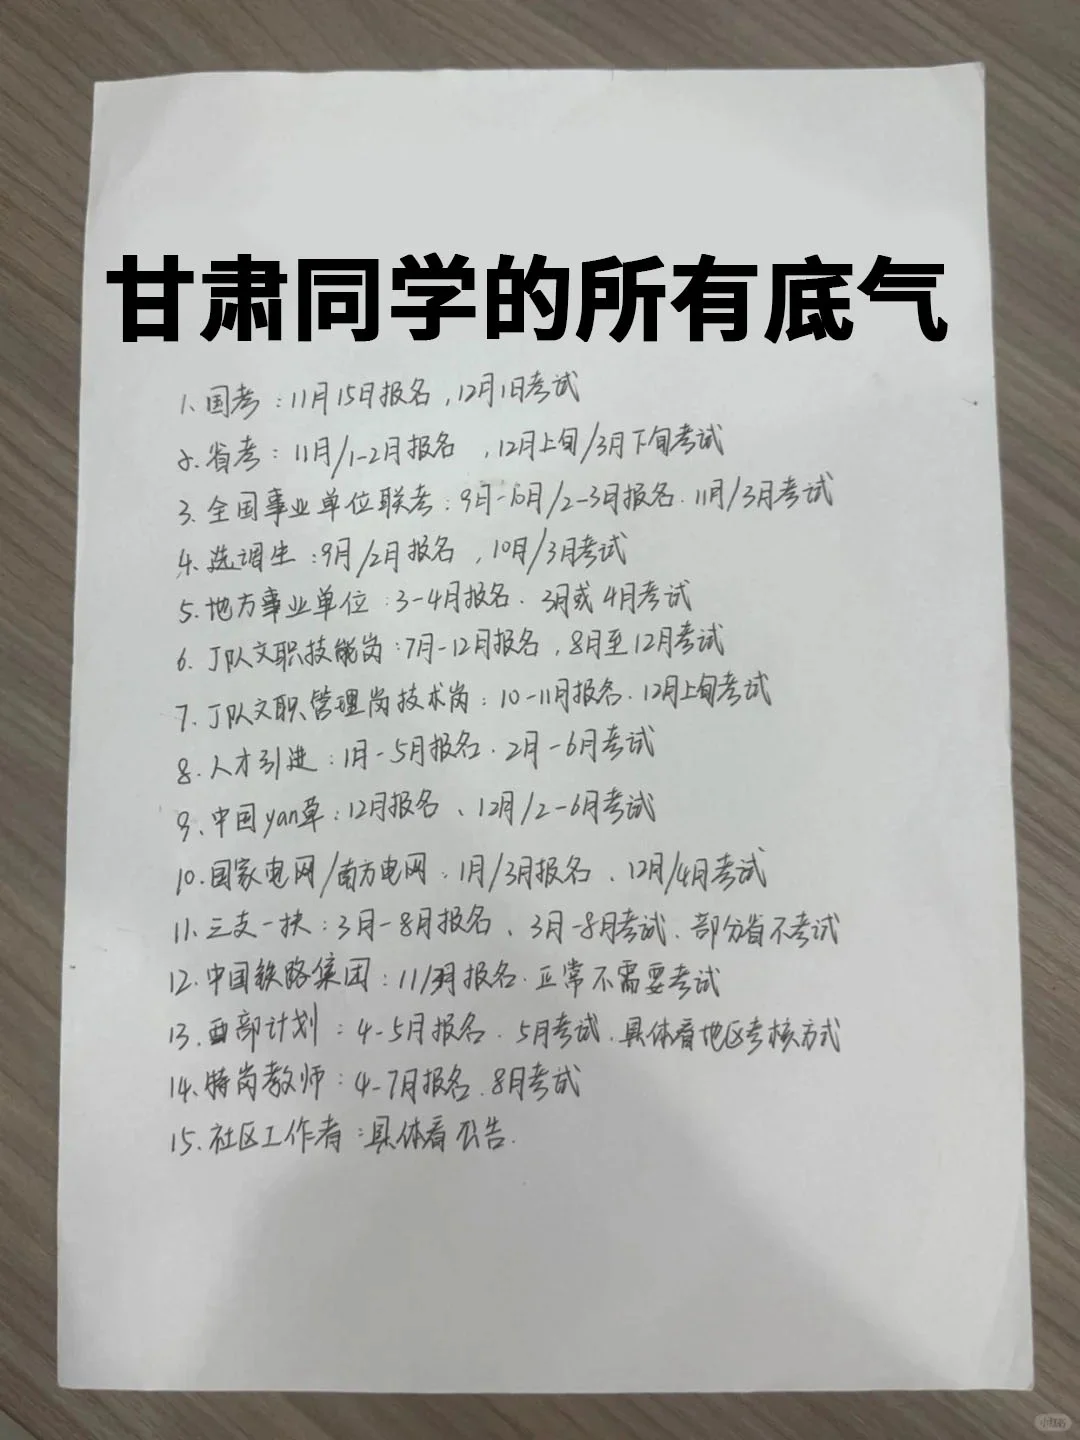 甘肃同学的所有底气
1、国考：11月15日报名，12月1日考试
2、省考：11月/1-2月报名，12月上旬/3月下旬考试
3、全国事业单位联考：9月-10月/2-3月报名．11月/3月考试
4、选调生：9月/2月报名，10月/3月考试
5、地方事业单位：3-4月报名．3月或4月考试
6、J队文职技能岗：7月-12月报名，8月至12月考试
7、J队文职管理岗技术岗：10-11月报名．12月上旬考试
8、人才引进：1月-5月报名．2月-6月考试
9、中国yan草：12月报名、12月/2-6月考试
10、国家电网/南方电网：1月/3月报名、12月/4月考试
11、三支一扶：3月-8月报名、3月-8月考试．部分省不考试
12、中国铁路集团：11/3月报名．正常不需要考试
13、西部计划：4-5月报名．5月考试．具体看地区考核方式
14、特岗教师：4-7月报名．8月考试
15、社区工作者：具体看公告．
小红书